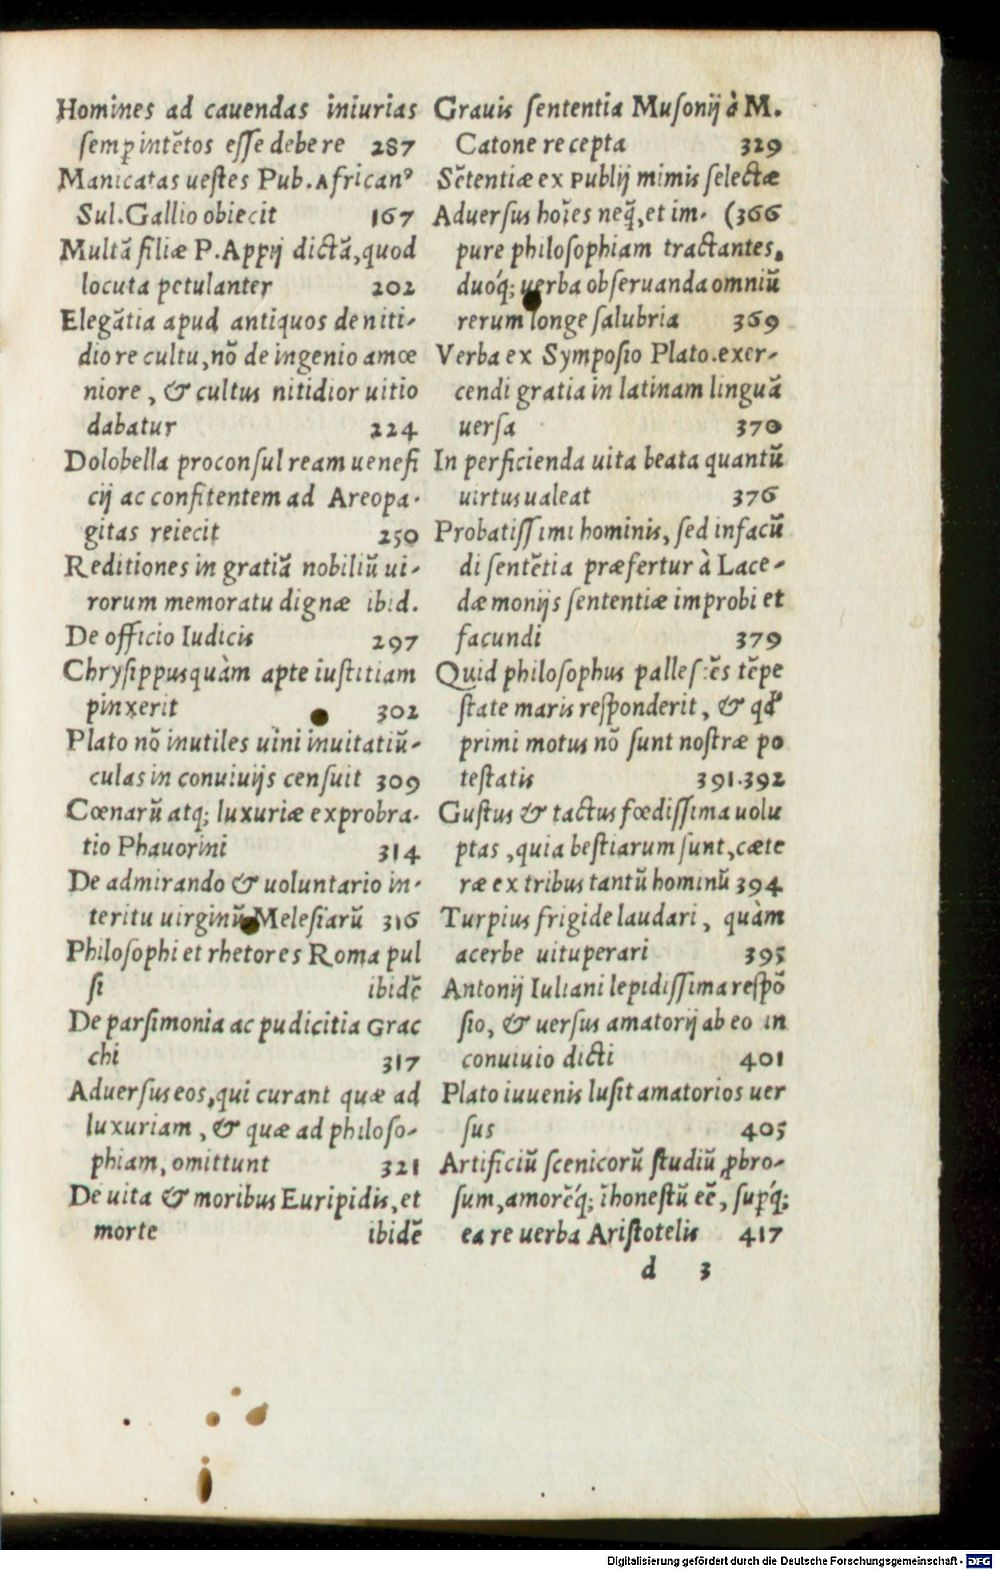 Homines ad cauendas iniurias
semꝑ intẽtos esse debere 287
Manicatas uestes Pub. Africanꝰ
Sul. Gallio obiecit 167
Multã filiæ P. Appij dictã, quod
locuta petulanter 202
Elegãtia apud antiquos de niti-
diore cultu, nõ de ingenio amœ
niore, & cultus nitidior uitio
dabatur 224
Dolobella proconsul ream uenefi
cij ac confitentem ad Areopa-
gitas reiecit 250
Reditiones in gratiã nobiliũ ui-
rorum memoratu dignæ ibid.
De officio Iudicis 297
Chrysippus quàm apte iustitiam
pinxerit 302
Plato nõ inutiles uini inuitatiũ-
culas in conuiuijs censuit 309
Cœnarũ atq; luxuriæ exprobra-
tio Phauorini 314
De admirando & uoluntario in-
teritu uirginũ Melesiarũ 316
Philosophi et rhetores Roma pul
si ibidẽ
De parsimonia ac pudicitia Grac
chi 317
Aduersus eos, qui curant quæ ad
luxuriam, & quæ ad philoso-
phiam, omittunt 321
De uita & moribus Euripidis, et
morte ibidẽ
Grauis sententia Musonij à M.
Catone recepta 329
Sẽtentiæ ex Publij mimis selectæ
Aduersus hoĩes neq̃, et im- (366
pure philosophiam tractantes,
duoq́; uerba obseruanda omniũ
rerum longe salubria 369
Verba ex Symposio Plato. exer-
cendi gratia in latinam linguã
uersa 370
In perficienda uita beata quantũ
uirtus ualeat 376
Probatissimi hominis, sed infacũ
di sentẽtia præfertur à Lace-
dæmonijs sententiæ improbi et
facundi 379
Quid philosophus pallescẽs tẽpe
state maris responderit, & qđ
primi motus nõ sunt nostræ po
testatis 391.392
Gustus & tactus fœdissima uolu
ptas, quia bestiarum sunt, cæte
ræ ex tribus tantũ hominũ 394
Turpius frigide laudari, quàm
acerbe uituperari 395
Antonij Iuliani lepidissima respõ
sio, & uersus amatorij ab eo in
conuiuio dicti 401
Plato iuuenis lusit amatorios uer
sus 405
Artificiũ scenicorũ studiũ ꝓbro-
sum, amorẽq́; ĩhonestũ eẽ, sup̱q́;
ea re uerba Aristotelis 417
d 3
Digitalisierung gefördert durch die Deutsche Forschungsgemeinschaft - DFG